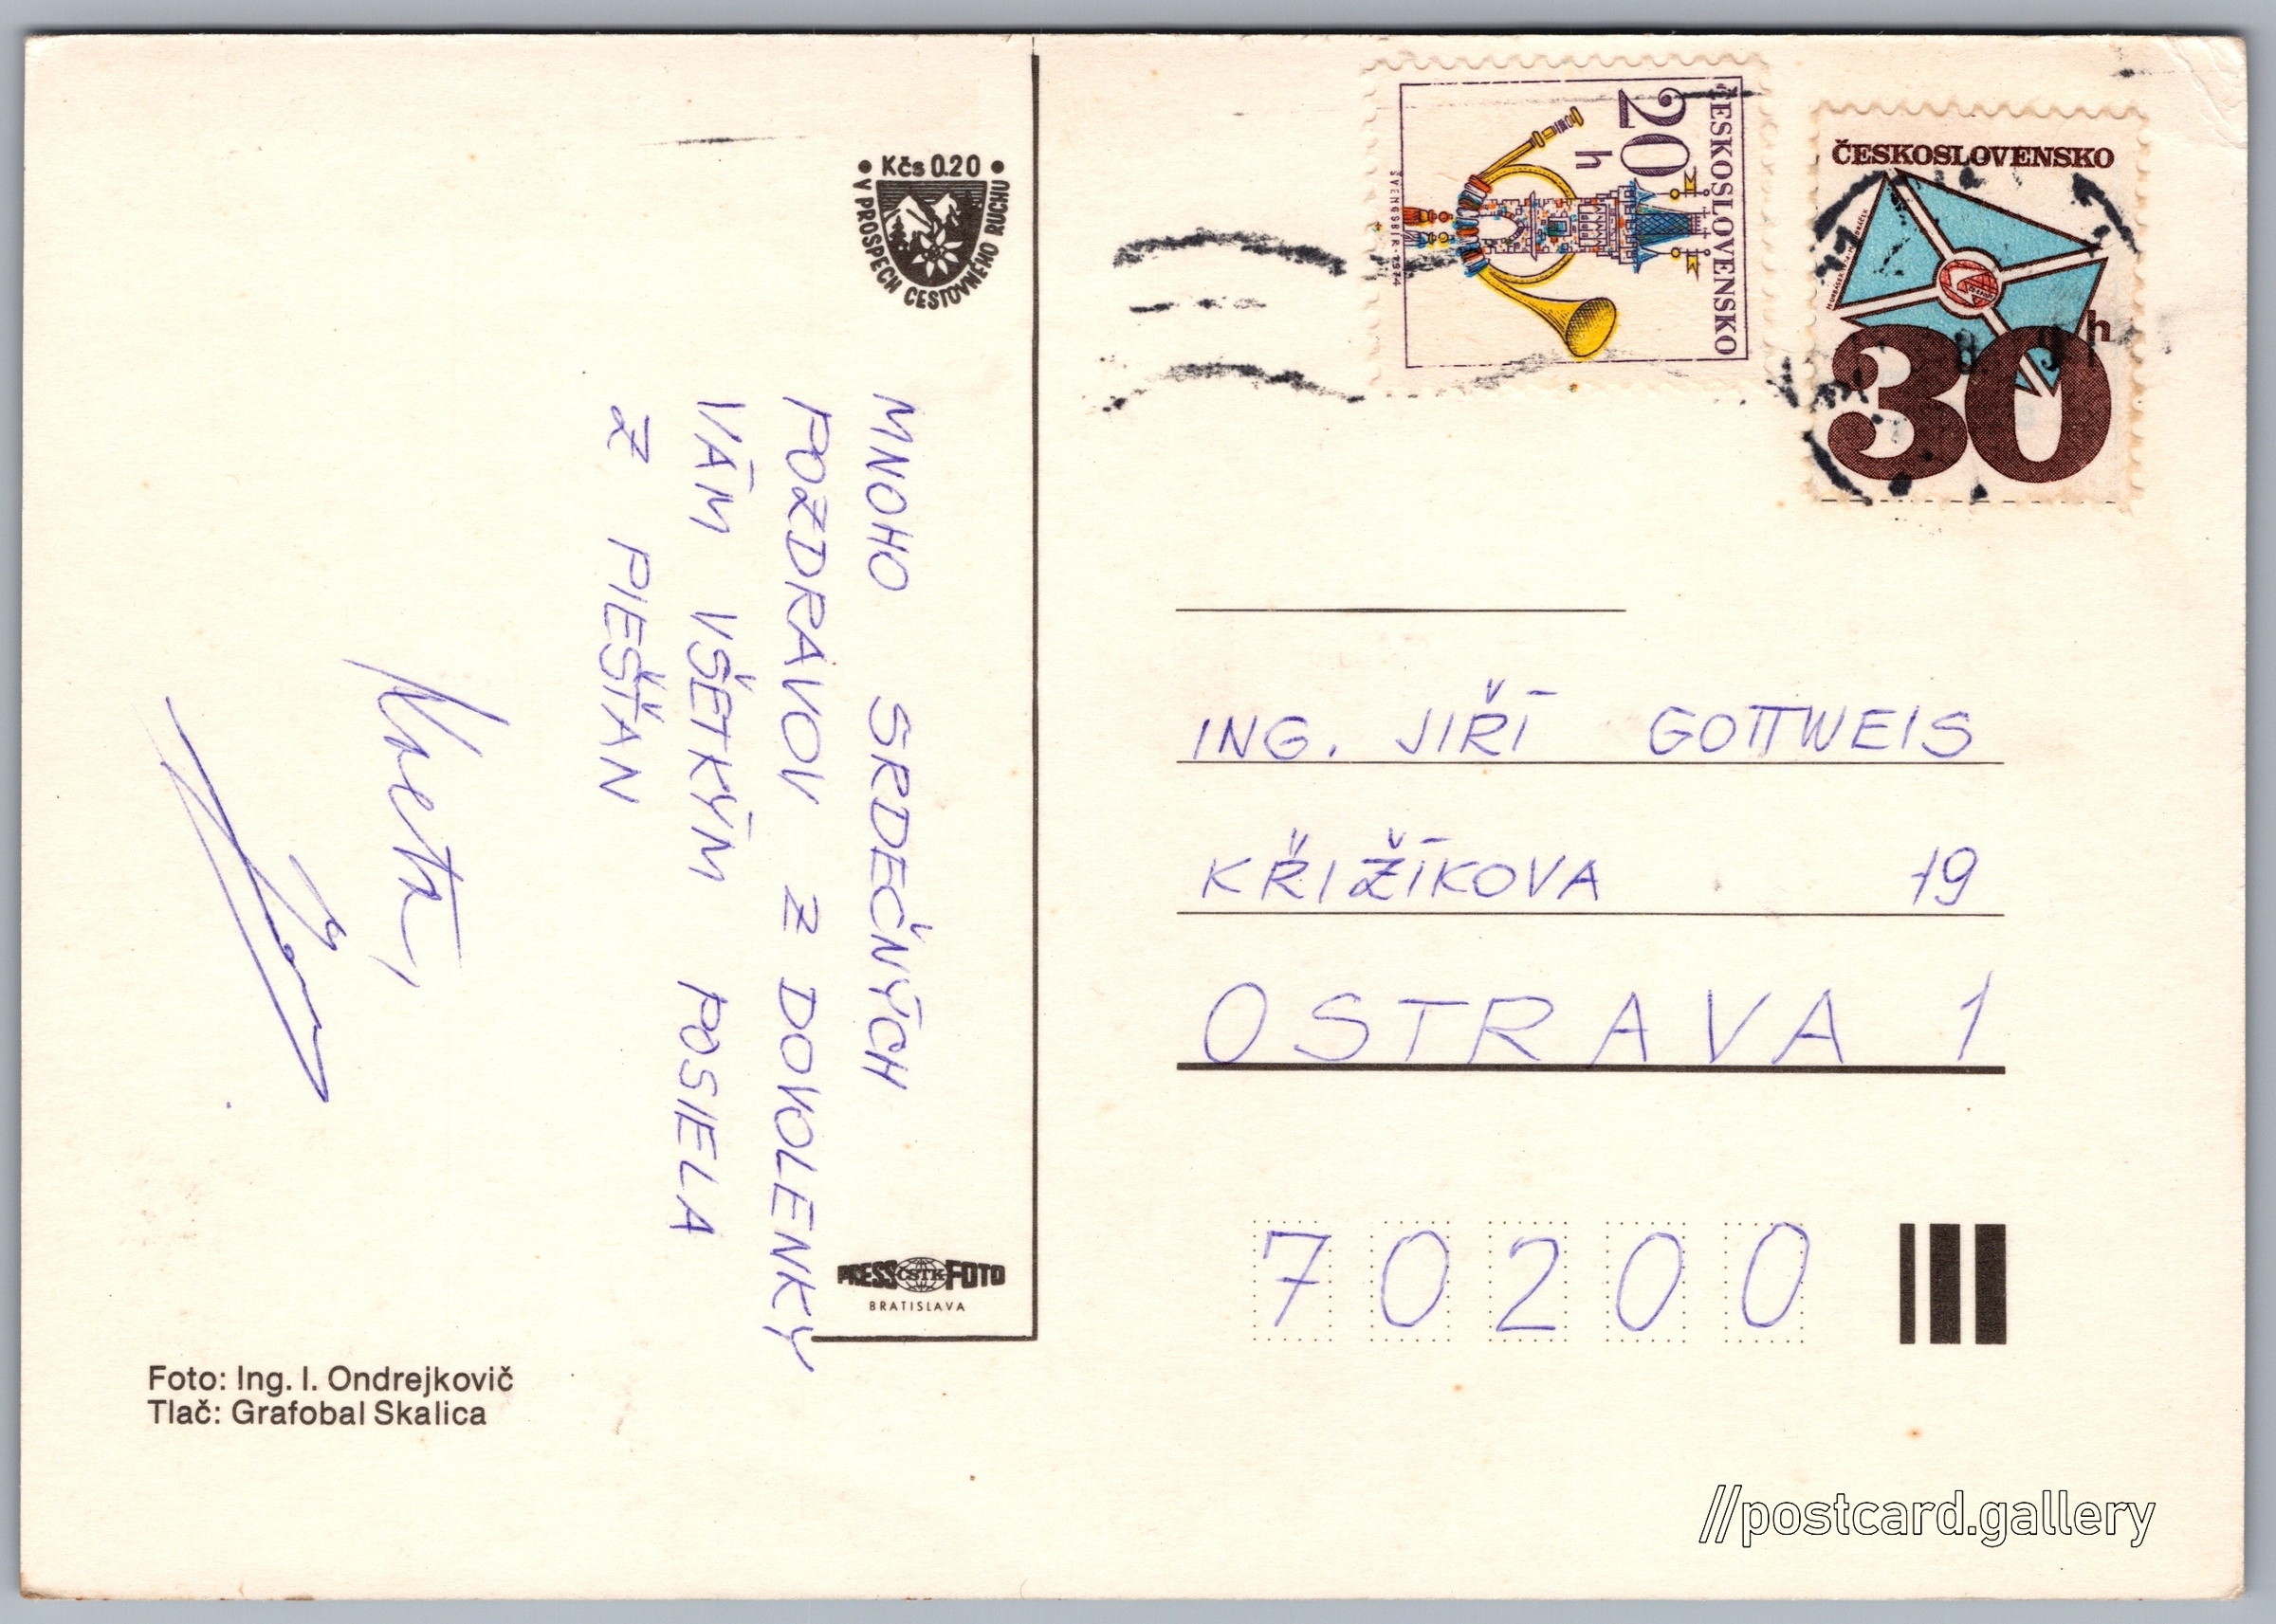 • Kčs 0.20 •
V PROSPECH CESTOVNÉHO RUCHU
MNOHO SRDEČNÝCH
POZDRAVOV Z DOVOLENKY
VÁM VŠETKÝM POSIELA
Z PIEŠŤAN
PRESS ČSTK FOTO
BRATISLAVA
Foto: Ing. I. Ondrejkovič
Tlač: Grafobal Skalica
ČESKOSLOVENSKO
20 h
ČESKOSLOVENSKO
30 h
ING. JIŘÍ GOTTWEIS
KŘIŽÍKOVA 19
OSTRAVA 1
70200
//postcard.gallery